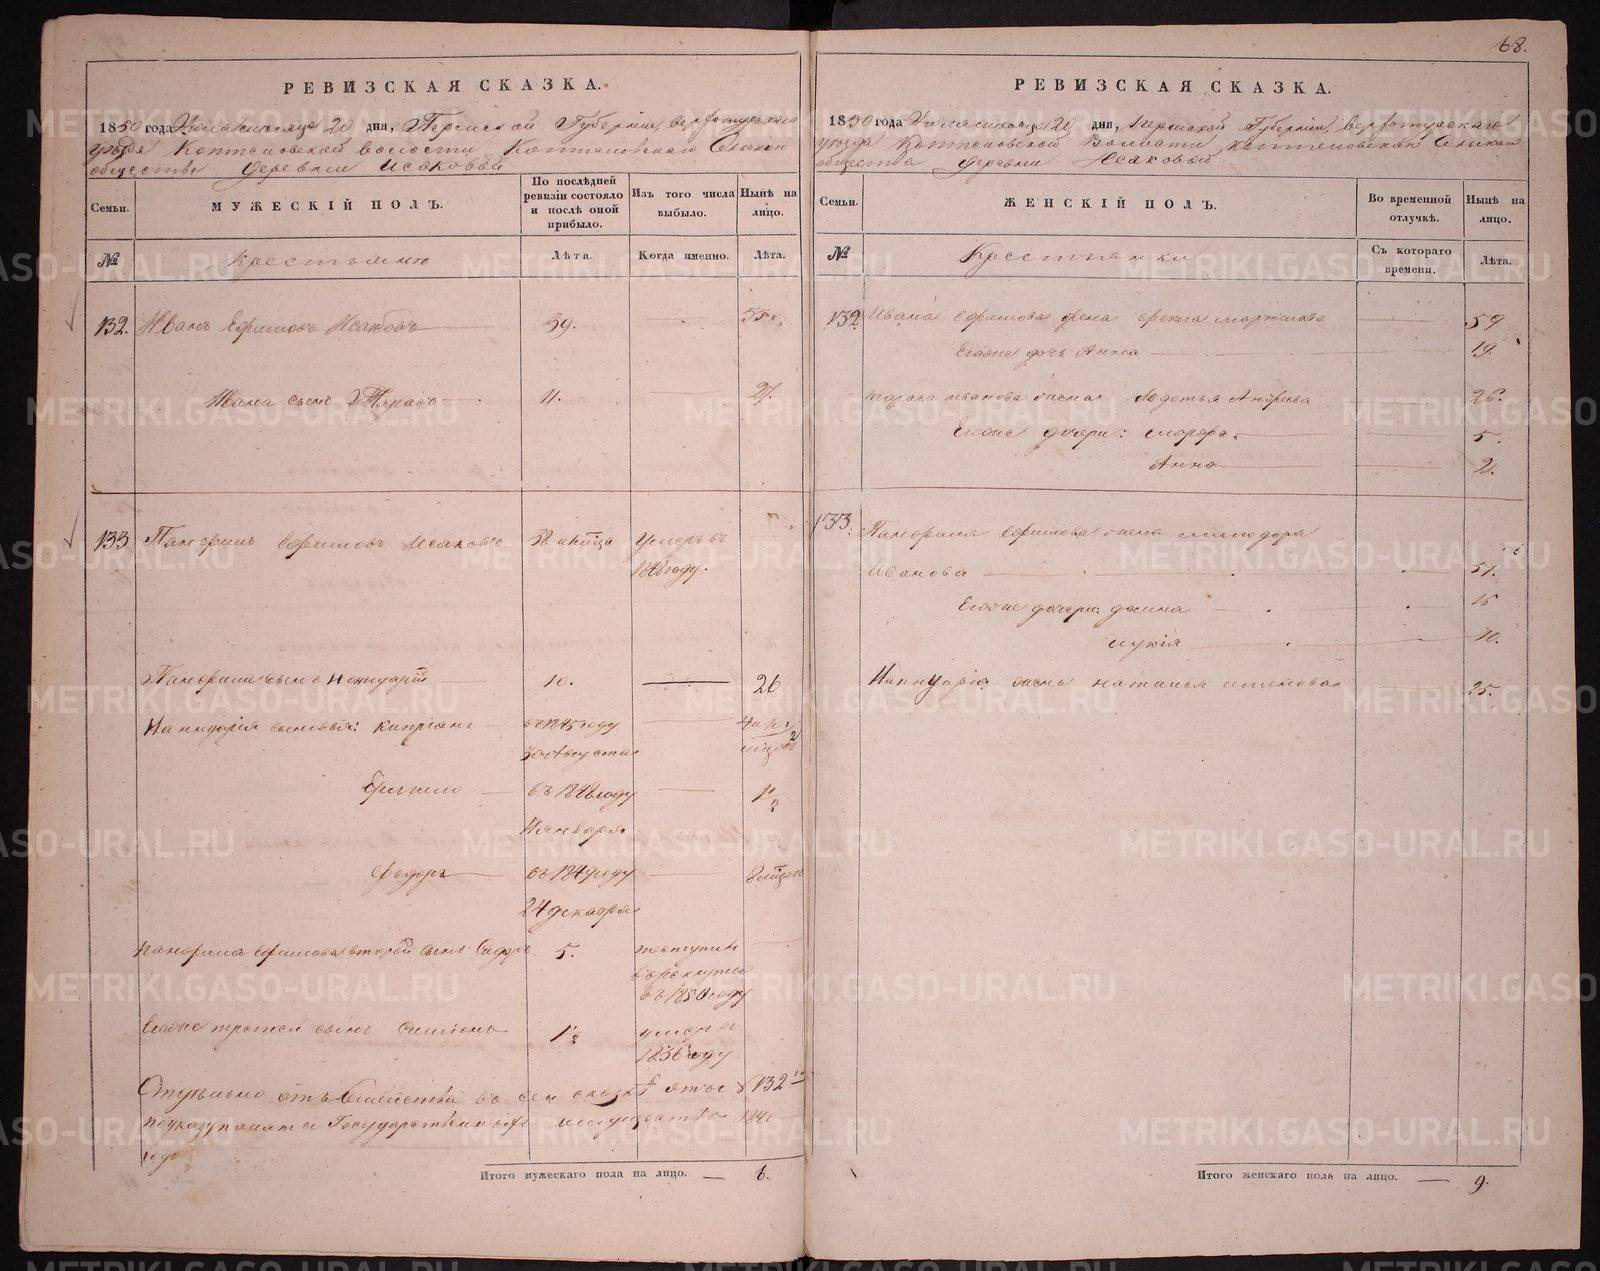 68.
РЕВИЗСКАЯ СКАЗКА.
1850 года месяца 20 дня, Пермской Губернии, Верхотурскаго
уезда Коптеловской волости Коптеловскаго Сельскаго
общества деревни Исаковой
Семьи.
МУЖЕСКІЙ ПОЛЪ.
По послѣдней ревизіи состояло и послѣ оной прибыло.
Изъ того числа выбыло.
Нынѣ на лицо.
№
Крестьяне
Лѣта.
Когда именно.
Лѣта.
132. Иванъ Ефимовъ Исаковъ 39. 55
Ивана сынъ Тарасъ 11. 27.
133 Панфилъ Ефимовъ Исаковъ 38 умеръ въ
1848 году.
Панфила сынъ Іаннуарій 10. 26
Іаннуарія сыновья: Кипріанъ въ 1845 году
30 Августа
Ермило въ 1848 году 1 1/2
Января
Федоръ въ 1849 году 8 мѣсяцовъ
24 декабря
Панфила Ефимова второй сынъ Сидоръ 5. поступилъ
въ рекруты
въ 1850 году
Егоже третей сынъ Симионъ 1 1/2 умеръ въ
1836 году
Отдѣльно отъ семейства въ сей сказкѣ 132
по указу палаты Государственныхъ имуществъ
года
Итого мужескаго пола на лицо. — 6.
РЕВИЗСКАЯ СКАЗКА.
1850 года месяца 20 дня, Пермской Губерніи, Верхотурскаго
уезда Коптеловской Волости, Коптеловскаго Сельскаго
общества деревни Исаковой
Семьи.
ЖЕНСКІЙ ПОЛЪ.
Во временной отлучкѣ.
Нынѣ на лицо.
№
Крестьянки
Съ котораго времени.
Лѣта.
132 Ивана Ефимова жена Мартинова 59
Егоже дочь Анна 19.
Тараса Иванова жена Авдотья Андреева 26.
Егоже дочери: Марфа 5.
Анна 2.
133. Панфила Ефимова жена Минодора
Иванова 51.
Егоже дочери: Домна 16
Лукія 10.
Іаннуарія жена Наталья Семенова 25.
Итого женскаго пола на лицо. — 9.
METRIKI.GASO-URAL.RU